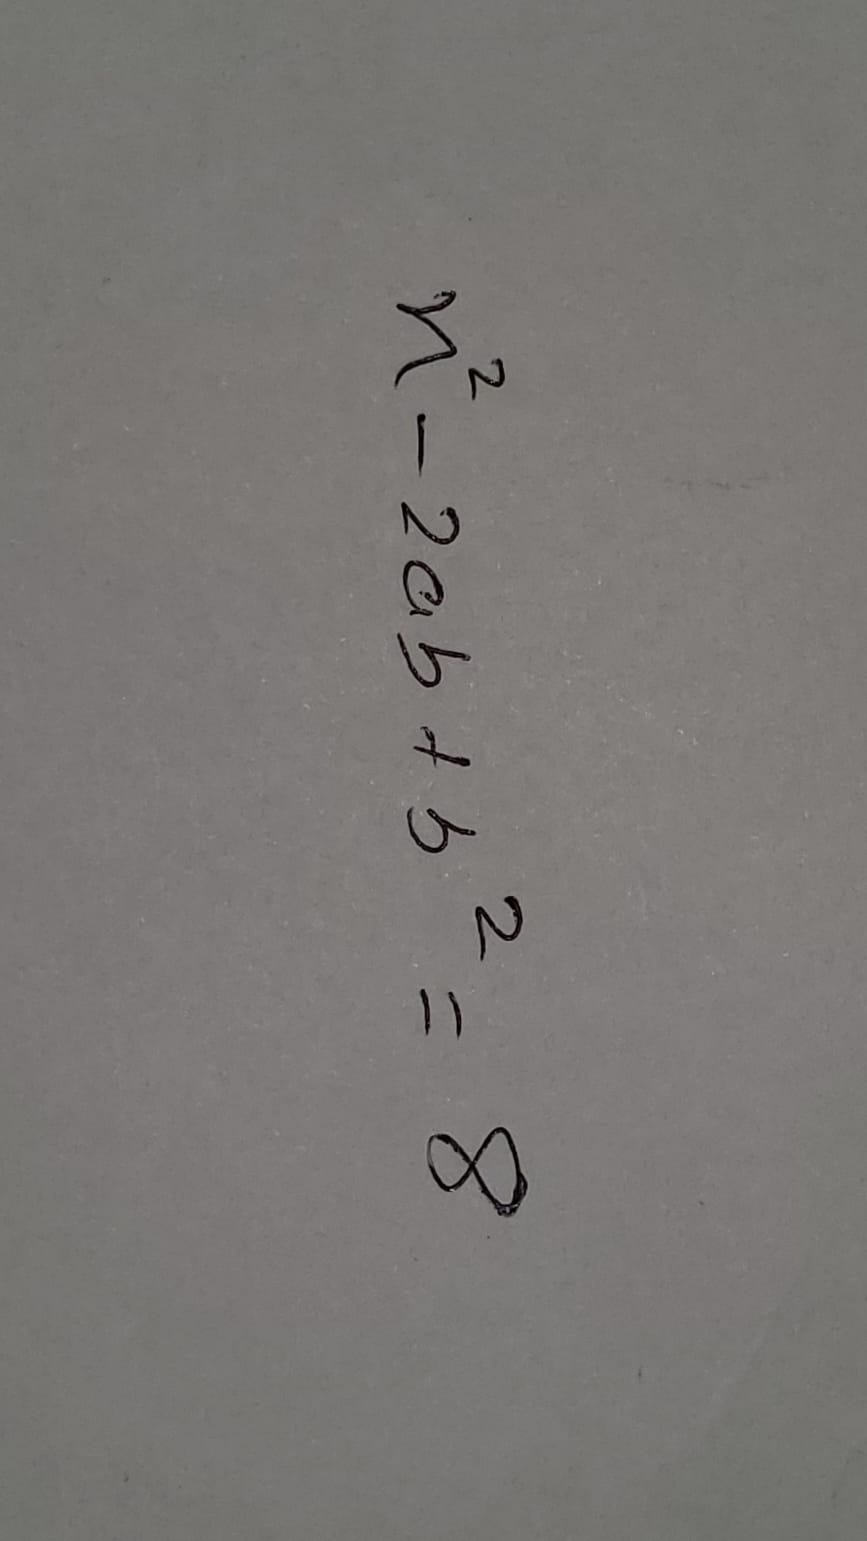 n² - 2ab + b² = 8